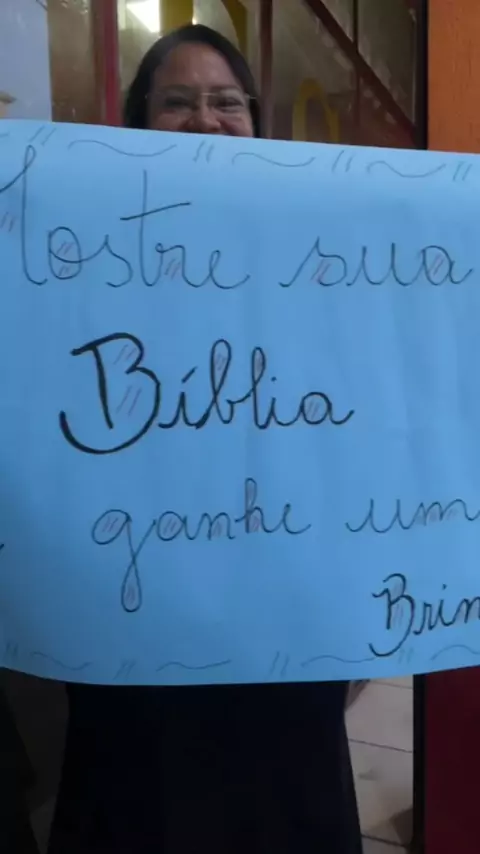 Mostre sua
Bíblia
ganhe um
Brin